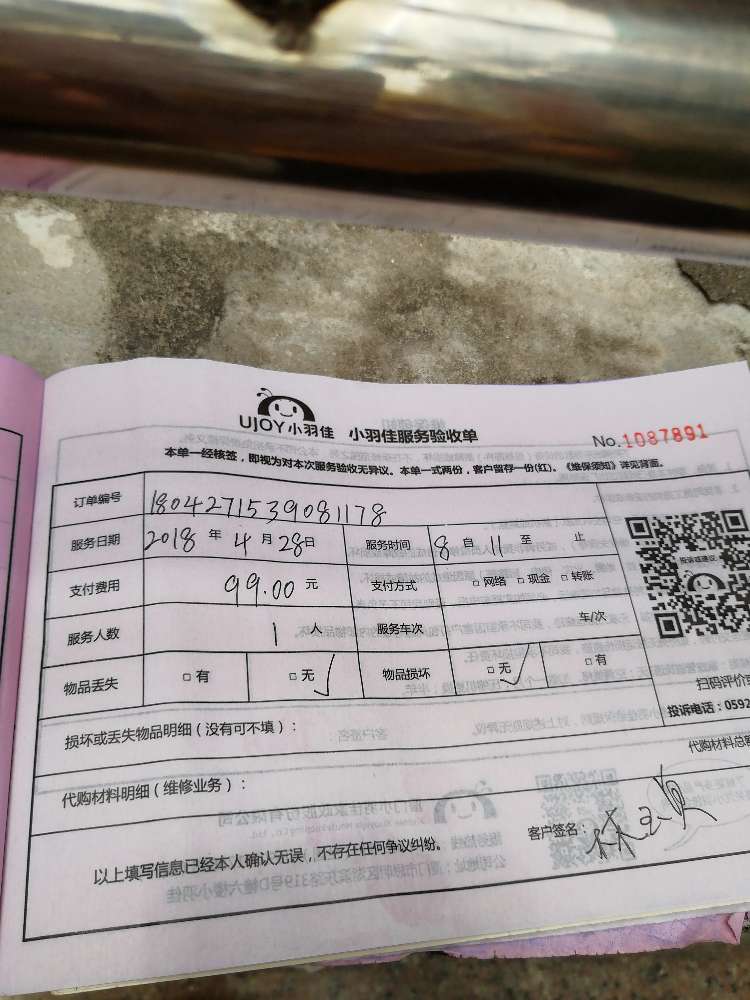 UJOY小羽佳 小羽佳服务验收单 No.1087891
本单一经核签，即视为对本次服务验收无异议。本单一式两份，客户留存一份(红)。《维保须知》详见背面。
订单编号 1804271539081178
服务日期 2018 年 4 月 28日 服务时间 8 自 11 至 止
支付费用 99.00 元 支付方式 □网络 □现金 □转账
投诉或建议
服务人数 1 人 服务车次 车/次
物品丢失 □有 □无 √ 物品损坏 □无 √ □有
扫码评价
投诉电话：0592
损坏或丢失物品明细（没有可不填）：
代购材料总
代购材料明细（维修业务）：
以上填写信息已经本人确认无误，不存在任何争议纠纷。 客户签名：